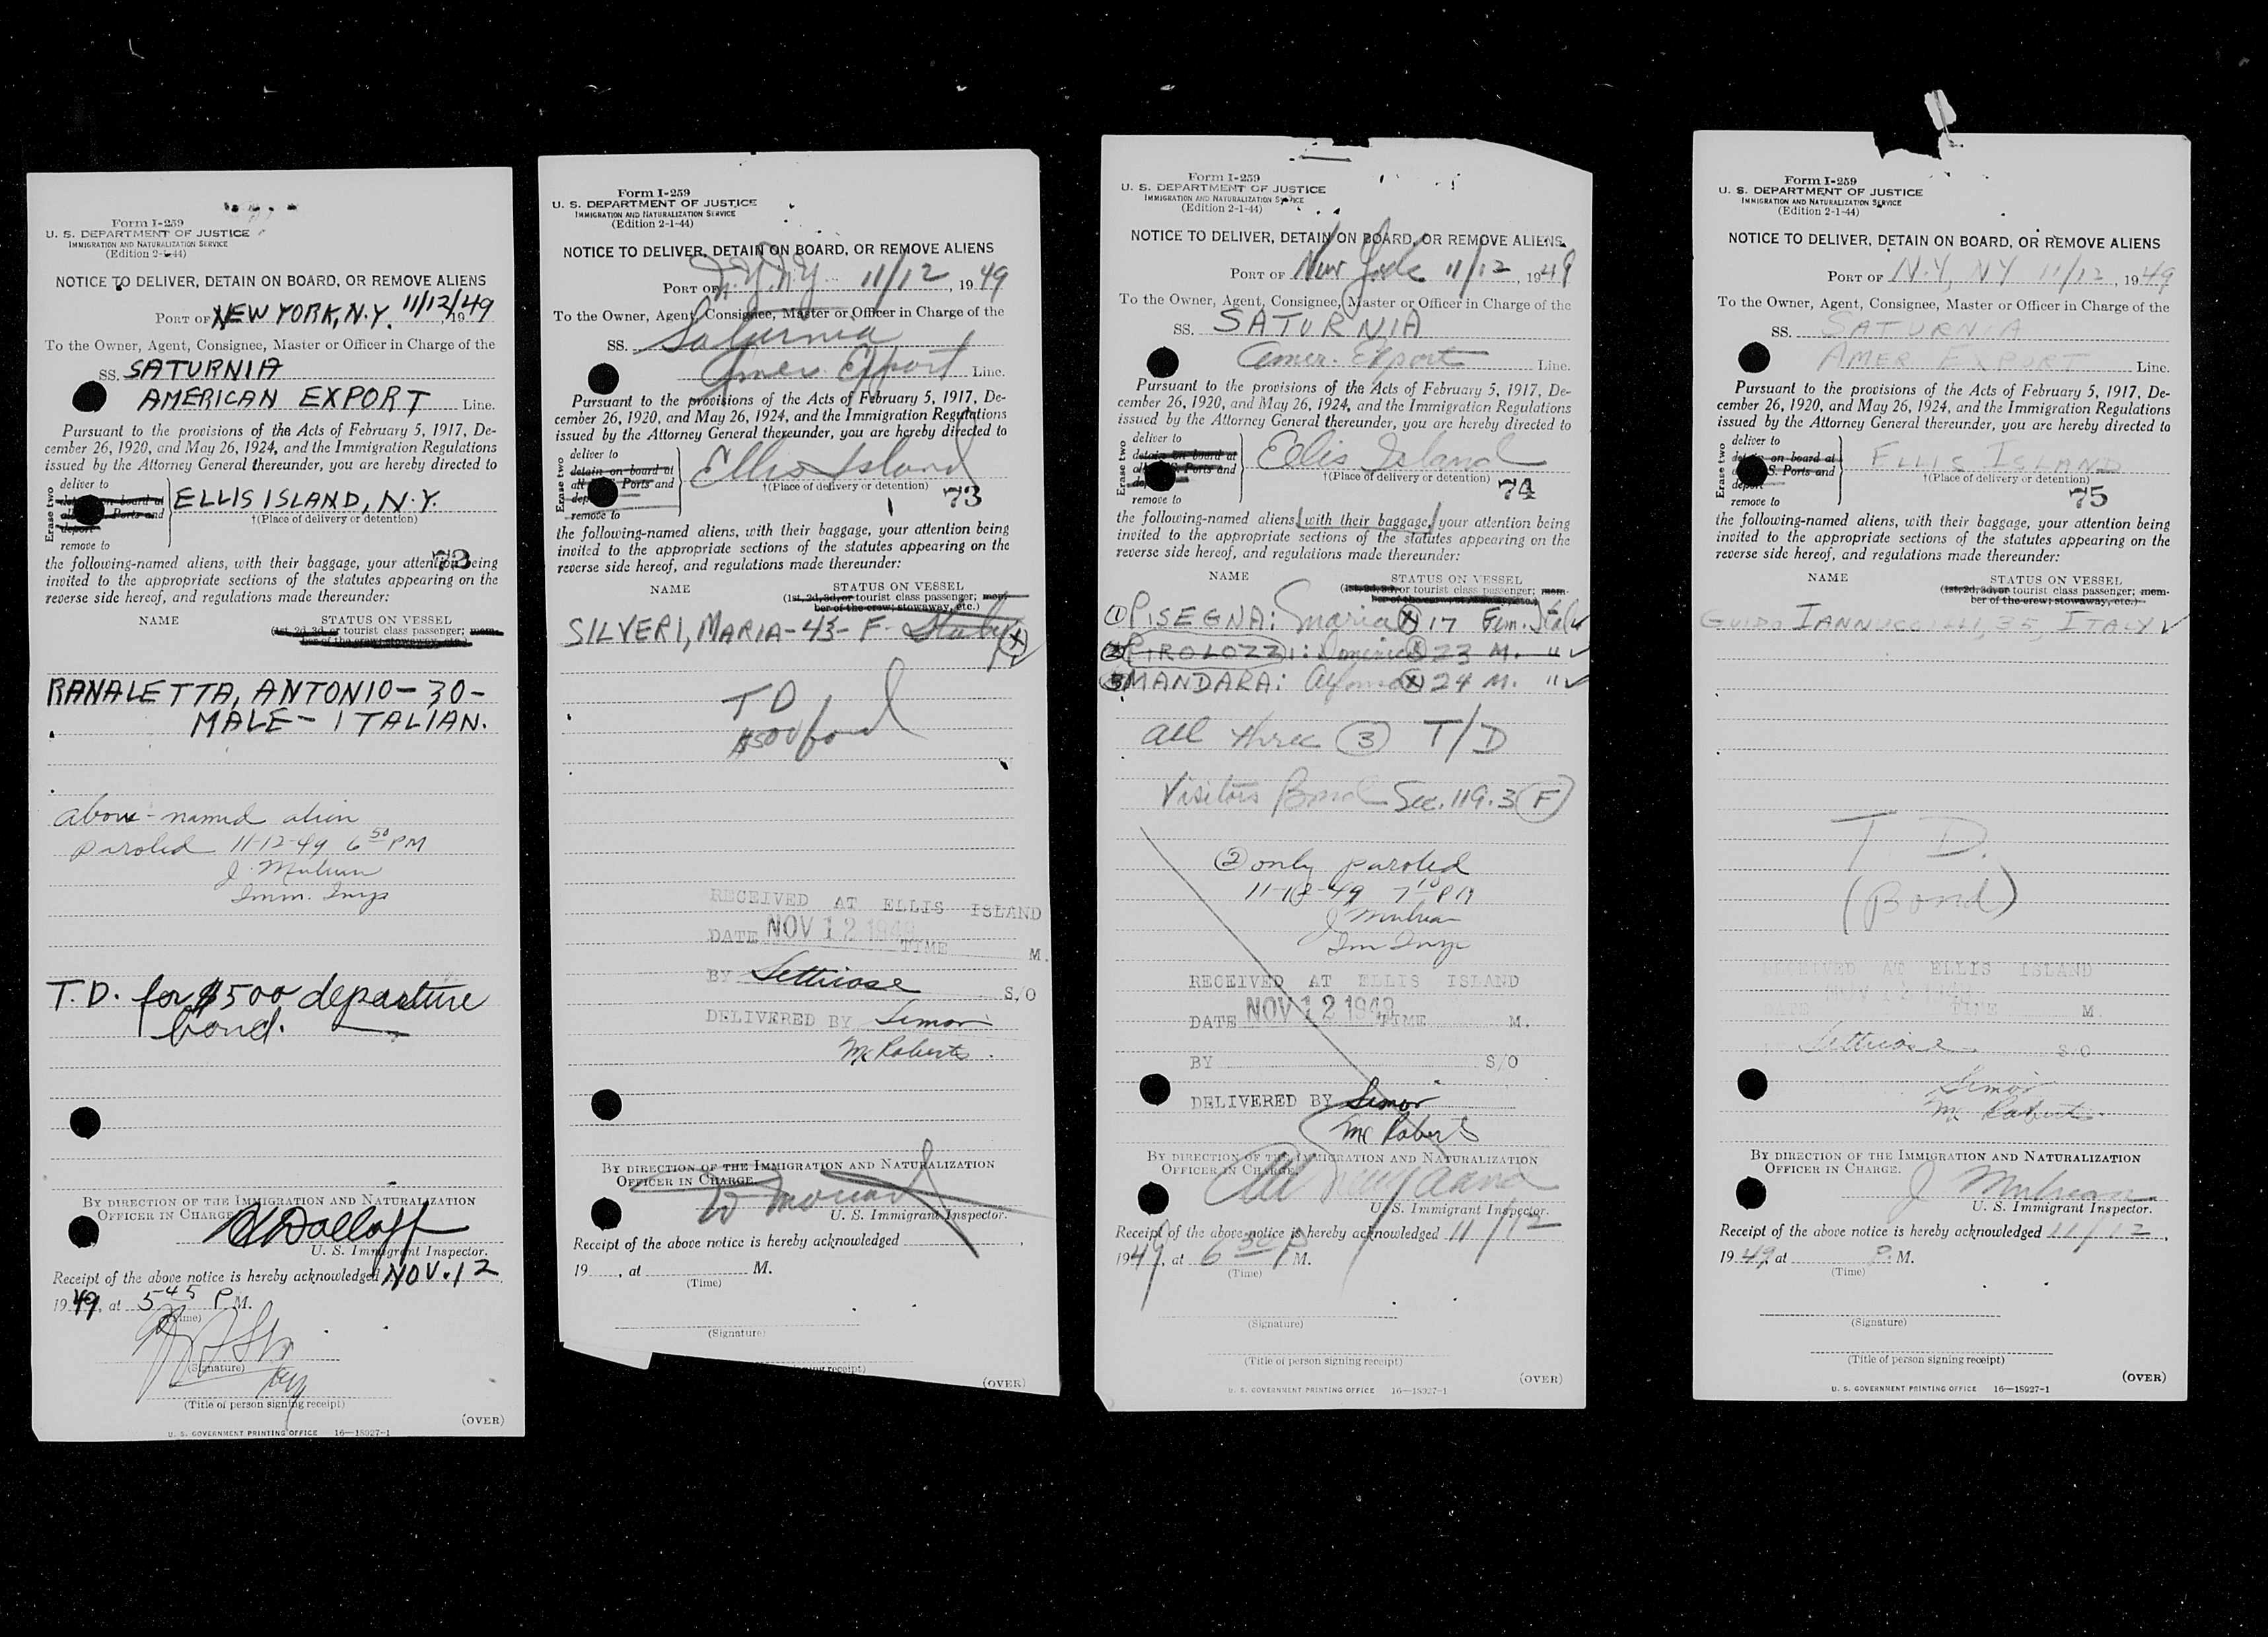 Form I-259
U. S. DEPARTMENT OF JUSTICE
IMMIGRATION AND NATURALIZATION SERVICE
(Edition 2-1-44)
NOTICE TO DELIVER, DETAIN ON BOARD, OR REMOVE ALIENS
PORT OF NEW YORK, N.Y. 11/12/1949
To the Owner, Agent, Consignee, Master or Officer in Charge of the
SS. SATURNIA
AMERICAN EXPORT Line.
Pursuant to the provisions of the Acts of February 5, 1917, De-
cember 26, 1920, and May 26, 1924, and the Immigration Regulations
issued by the Attorney General thereunder, you are hereby directed to
Erase two
deliver to
detain on board at
all U. S. Ports and
deport
remove to
ELLIS ISLAND, N.Y.
†(Place of delivery or detention)
72
the following-named aliens, with their baggage, your attention being
invited to the appropriate sections of the statutes appearing on the
reverse side hereof, and regulations made thereunder:
NAME STATUS ON VESSEL
(1st, 2d, 3d, or tourist class passenger; mem-
ber of the crew; stowaway, etc.)
RANALETTA, ANTONIO - 30 -
MALE - ITALIAN.
above-named alien
paroled 11-12-49 6 50 PM
J. Mulrean
Imm. Insp
T.D. for $500 departure
bond.
BY DIRECTION OF THE IMMIGRATION AND NATURALIZATION
OFFICER IN CHARGE.
U. S. Immigrant Inspector.
Receipt of the above notice is hereby acknowledged NOV. 12
1949, at 5 45 P.M.
(Time)
(Signature)
(Title of person signing receipt)
(OVER)
U. S. GOVERNMENT PRINTING OFFICE 16—18927-1
Form I-259
U. S. DEPARTMENT OF JUSTICE
IMMIGRATION AND NATURALIZATION SERVICE
(Edition 2-1-44)
NOTICE TO DELIVER, DETAIN ON BOARD, OR REMOVE ALIENS
PORT OF N.Y.N.Y 11/12, 1949
To the Owner, Agent, Consignee, Master or Officer in Charge of the
SS. Saturnia
Amer. Export Line.
Pursuant to the provisions of the Acts of February 5, 1917, De-
cember 26, 1920, and May 26, 1924, and the Immigration Regulations
issued by the Attorney General thereunder, you are hereby directed to
Erase two
deliver to
detain on board at
all U. S. Ports and
deport
remove to
Ellis Island
†(Place of delivery or detention)
73
the following-named aliens, with their baggage, your attention being
invited to the appropriate sections of the statutes appearing on the
reverse side hereof, and regulations made thereunder:
NAME STATUS ON VESSEL
(1st, 2d, 3d, or tourist class passenger; mem-
ber of the crew; stowaway, etc.)
SILVERI, MARIA - 43 - F - Italy X
TD
$500 bond
RECEIVED AT ELLIS ISLAND
DATE NOV 12 1949 TIME M.
BY Letticose S/O
DELIVERED BY Simon
McRoberts.
BY DIRECTION OF THE IMMIGRATION AND NATURALIZATION
OFFICER IN CHARGE.
U. S. Immigrant Inspector.
Receipt of the above notice is hereby acknowledged
19 , at M.
(Time)
(Signature)
(OVER)
Form I-259
U. S. DEPARTMENT OF JUSTICE
IMMIGRATION AND NATURALIZATION SERVICE
(Edition 2-1-44)
NOTICE TO DELIVER, DETAIN ON BOARD, OR REMOVE ALIENS
PORT OF New York 11/12, 1949
To the Owner, Agent, Consignee, Master or Officer in Charge of the
SS. SATURNIA
Amer. Export Line.
Pursuant to the provisions of the Acts of February 5, 1917, De-
cember 26, 1920, and May 26, 1924, and the Immigration Regulations
issued by the Attorney General thereunder, you are hereby directed to
Erase two
deliver to
detain on board at
all U. S. Ports and
deport
remove to
Ellis Island
†(Place of delivery or detention)
74
the following-named aliens, with their baggage, your attention being
invited to the appropriate sections of the statutes appearing on the
reverse side hereof, and regulations made thereunder:
NAME STATUS ON VESSEL
(1st, 2d, 3d, or tourist class passenger; mem-
ber of the crew; stowaway, etc.)
1 PISEGNA: Maria X 17 Fem. Ital ✓
2 PIROLOZZI: Domenic 23 M. " ✓
3 MANDARA: Alfonso X 24 M. " ✓
all three 3 T/D
Visitors Bond Sec. 119.3 (F)
2 only paroled
11-12-49 7 10 PM
J Mulrean
Im Insp
RECEIVED AT ELLIS ISLAND
DATE NOV 12 1949 TIME M.
BY S/O
DELIVERED BY Simon
McRoberts
BY DIRECTION OF THE IMMIGRATION AND NATURALIZATION
OFFICER IN CHARGE.
U. S. Immigrant Inspector.
Receipt of the above notice is hereby acknowledged 11/12
1949, at 6 30 P M.
(Time)
(Signature)
(Title of person signing receipt)
(OVER)
U. S. GOVERNMENT PRINTING OFFICE 16—18927-1
Form I-259
U. S. DEPARTMENT OF JUSTICE
IMMIGRATION AND NATURALIZATION SERVICE
(Edition 2-1-44)
NOTICE TO DELIVER, DETAIN ON BOARD, OR REMOVE ALIENS
PORT OF N.Y, NY 11/12, 1949
To the Owner, Agent, Consignee, Master or Officer in Charge of the
SS. SATURNIA
AMER EXPORT Line.
Pursuant to the provisions of the Acts of February 5, 1917, De-
cember 26, 1920, and May 26, 1924, and the Immigration Regulations
issued by the Attorney General thereunder, you are hereby directed to
Erase two
deliver to
detain on board at
all U. S. Ports and
deport
remove to
ELLIS ISLAND
†(Place of delivery or detention)
75
the following-named aliens, with their baggage, your attention being
invited to the appropriate sections of the statutes appearing on the
reverse side hereof, and regulations made thereunder:
NAME STATUS ON VESSEL
(1st, 2d, 3d, or tourist class passenger; mem-
ber of the crew; stowaway, etc.)
GUIDO IANNUCCILLI, 35, ITALY ✓
T D.
(Bond)
RECEIVED AT ELLIS ISLAND
DATE NOV 12 1949 TIME M.
Letticose S/O
Simon
McRoberts
BY DIRECTION OF THE IMMIGRATION AND NATURALIZATION
OFFICER IN CHARGE.
J Mulrean
U. S. Immigrant Inspector.
Receipt of the above notice is hereby acknowledged 11/12,
1949, at P. M.
(Time)
(Signature)
(Title of person signing receipt)
(OVER)
U. S. GOVERNMENT PRINTING OFFICE 16—18927-1